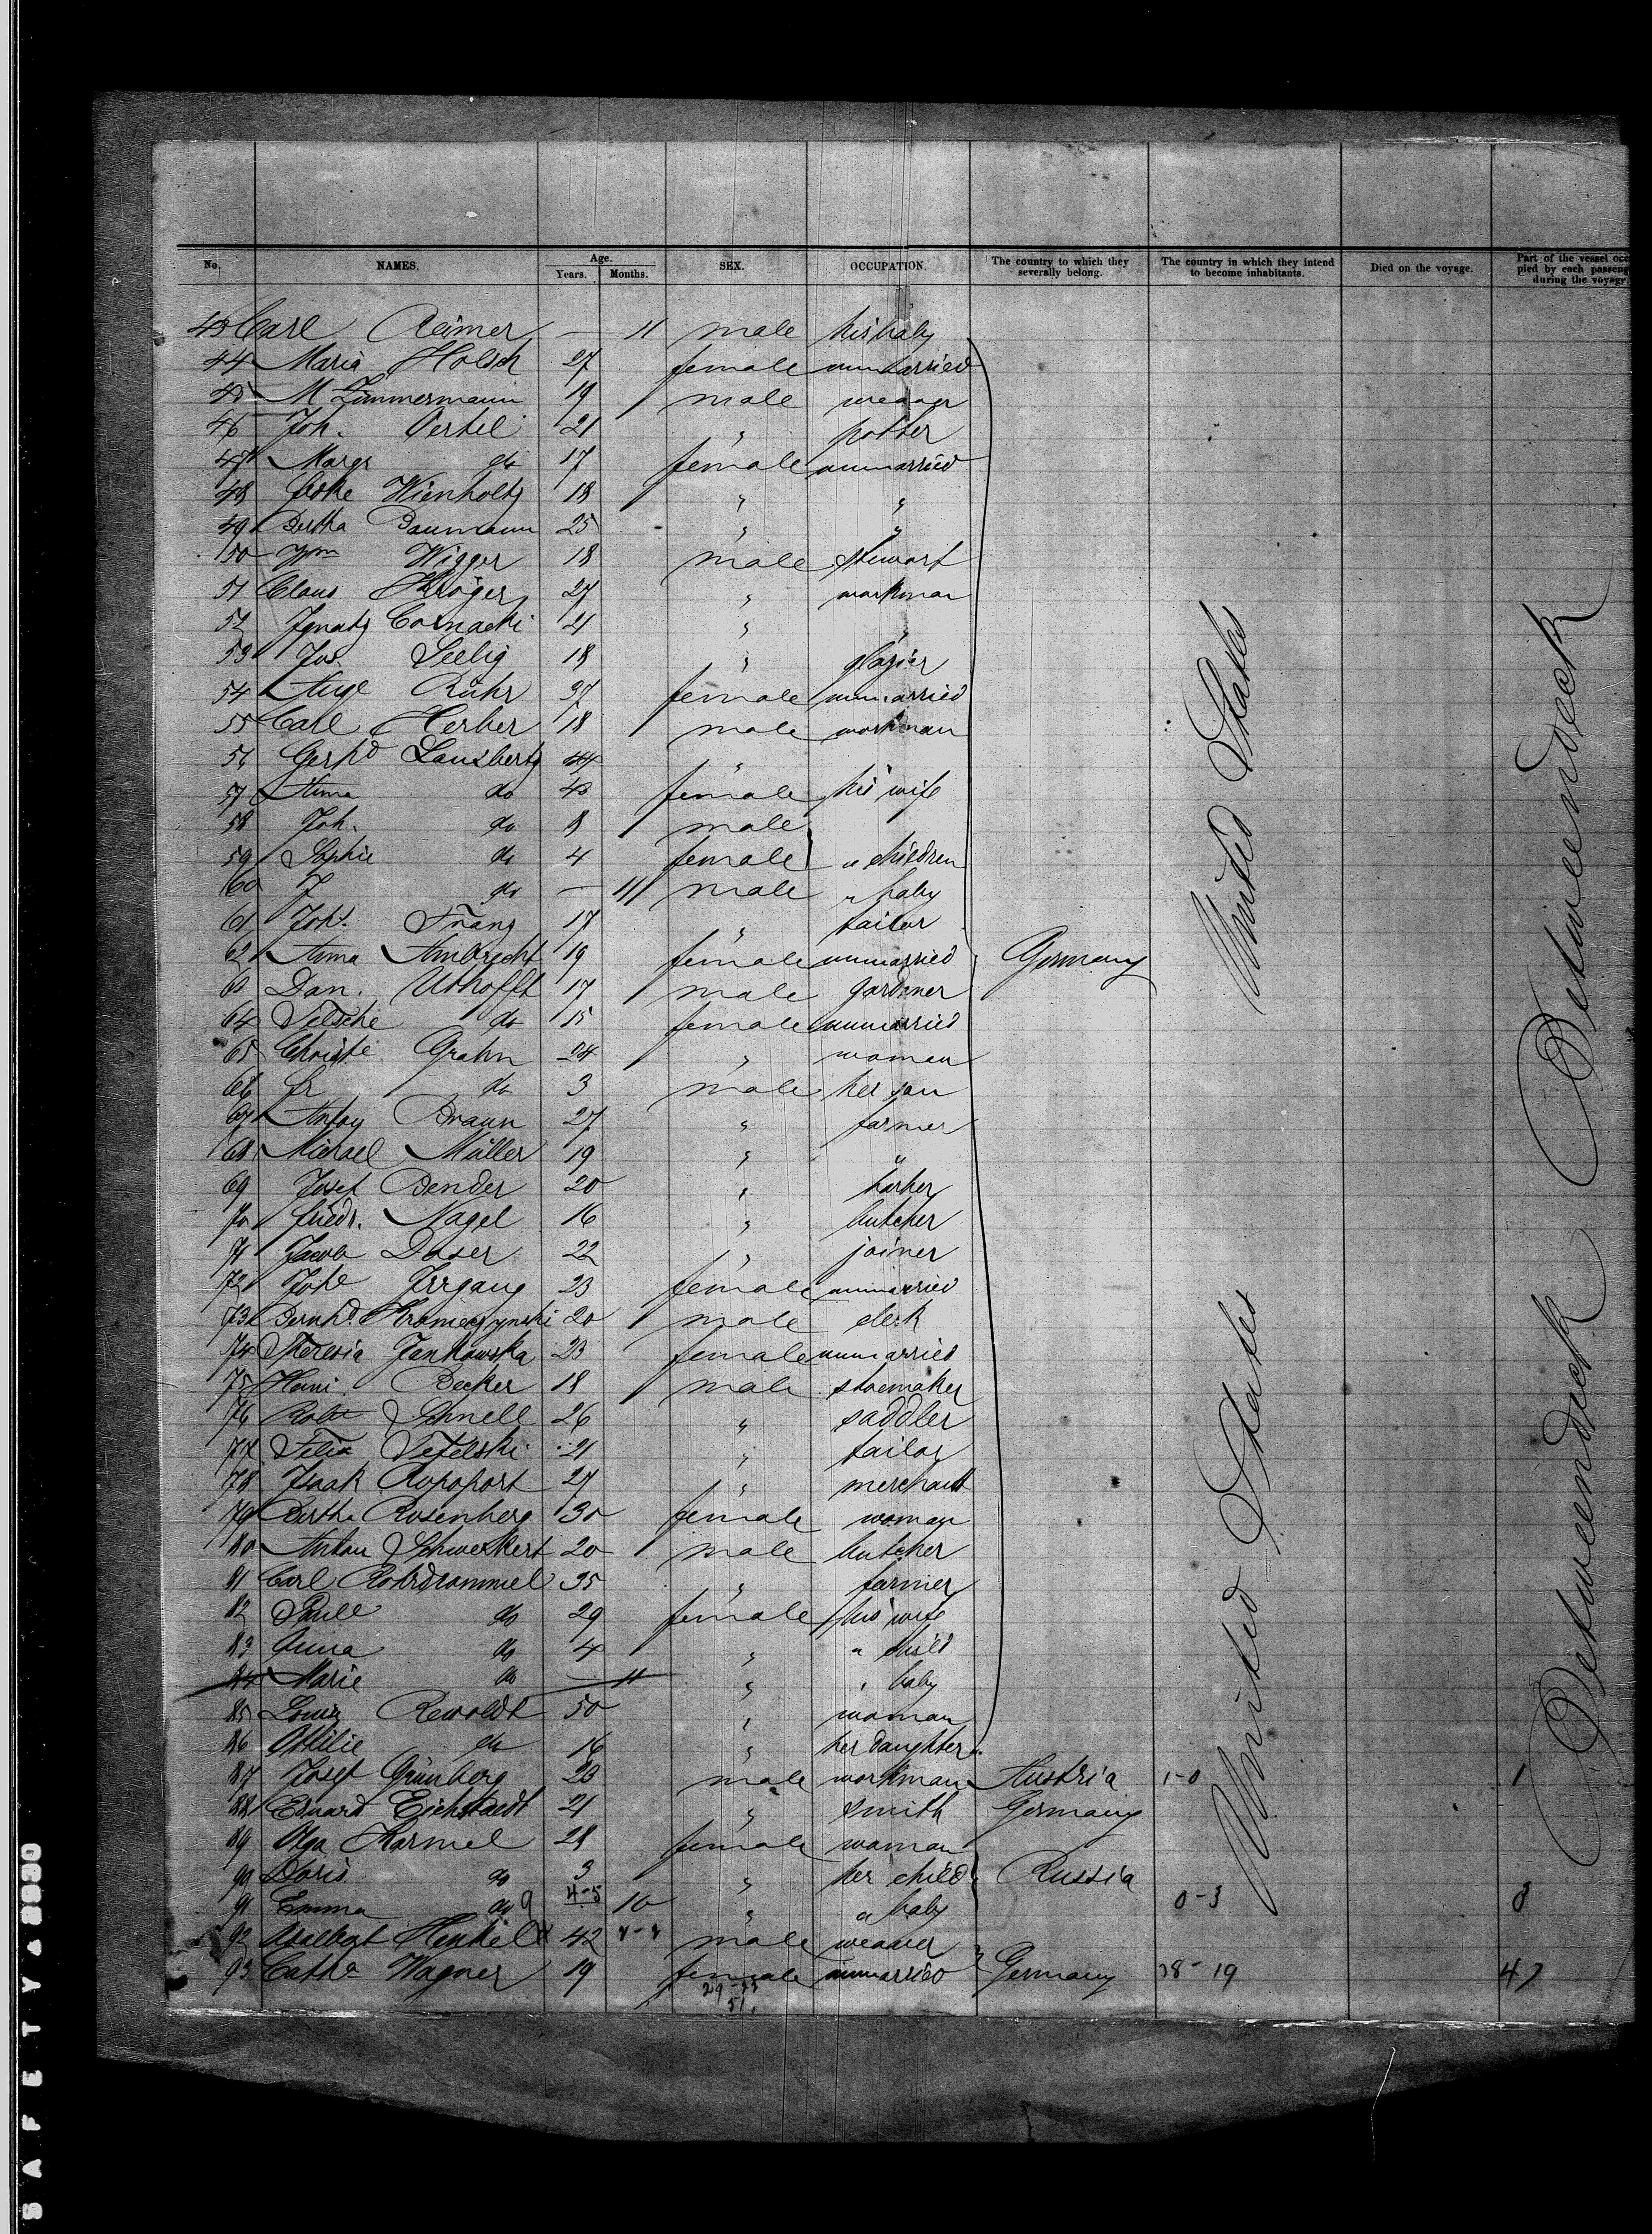 No. NAMES. Age. Years. Months. SEX. OCCUPATION. The country to which they severally belong. The country in which they intend to become inhabitants. Died on the voyage. Part of the vessel occupied by each passenger during the voyage.
43 Carl Reimer — 11 male his baby
44 Maria Holsch 27 female unmarried
45 M Zimmermann 19 male weaver
46 Joh. Oertel 21 " potter
47 Margr do 17 female unmarried
48 Wienholtz 18 " "
49 Bertha Baumann 25 " "
50 Wm Wigger 18 male stewart
51 Claus Kröger 27 " workman
52 Ignatz Cosnacki 21 " "
53 Jos. Seelig 18 " glazier
54 Auge Rühr 37 female unmarried
55 Carl Herber 18 male workman
56 Gerhd Lansbertz 44 "
57 Anna do 43 female his wife
58 Joh. do 8 male
59 Sophie do 4 female " children
60 J do — 11 male " baby
61 Joh. Franz 17 " tailor
62 Anna Ambrecht 19 female unmarried Germany United States Betweendeck
63 Dan. Uthofft 17 male gardener
64 do 15 female unmarried
65 Christe Grahn 24 " woman
66 Fr do 3 male her son
67 Antoy Braun 27 " farmer
68 Michael Müller 19 " "
69 Josef Bender 20 "
70 Friedr. Nagel 16 " butcher
71 Jacob Doser 22 " joiner
72 Irrgang 23 female unmarried
73 Bernhd. 20 male clerk
74 Theresia Jankowska 23 female unmarried
75 Heini. Becker 18 male shoemaker
76 Robt Schnell 26 " saddler
77 Felix Tefelski 21 " tailor
78 Isaak Ropoport 27 " merchant
79 Bertha Rosenberg 30 female woman
80 Anton Schweikert 20 male butcher
81 Carl Rohrdrommel 35 " farmer
82 Paule do 29 female his wife
83 Anna do 4 " " child
84 Marie do — 11 " " baby
85 Louis Rewoldt 50 " woman
86 Ottilie do 16 " her daughter United States Betweendeck
87 Josef Grünberg 20 male workman Austria 1-0 1
88 Eduard Eichstaedt 21 " smith Germany
89 Olga Karmel 28 female woman
90 Doris do 3 " her child Russia
91 Emma do 9 4-5 10 " " baby 0-3 3
92 Adalbert Henkel 42 male weaver
93 Catha Wagner 19 female unmarried Germany 28-19 47
51.
SAFETY